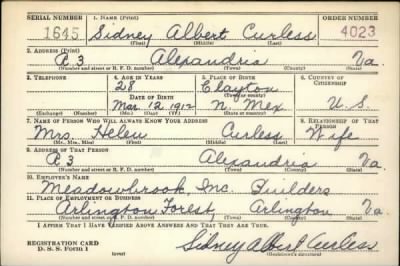 SERIAL NUMBER 1. NAME (Print) ORDER NUMBER
1645 Sidney Albert Curless 4023
(First) (Middle) (Last)
2. ADDRESS (Print)
R 3 Alexandria Va.
(Number and street or R. F. D. number) (Town) (County) (State)
3. TELEPHONE 4. AGE IN YEARS 5. PLACE OF BIRTH 6. COUNTRY OF CITIZENSHIP
28 Clayton
(Town or county)
DATE OF BIRTH
Mar. 12 1912 N. Mex. U. S.
(Exchange) (Number) (Mo.) (Day) (Yr.) (State or country)
7. NAME OF PERSON WHO WILL ALWAYS KNOW YOUR ADDRESS 8. RELATIONSHIP OF THAT PERSON
Mrs. Helen Curless Wife
(Mr., Mrs., Miss) (First) (Middle) (Last)
9. ADDRESS OF THAT PERSON
R 3 Alexandria Va
(Number and street or R. F. D. number) (Town) (County) (State)
10. EMPLOYER'S NAME
Meadowbrook, Inc. Builders
11. PLACE OF EMPLOYMENT OR BUSINESS
Arlington Forest, Arlington Va
(Number and street or R. F. D. number) (Town) (County) (State)
I AFFIRM THAT I HAVE VERIFIED ABOVE ANSWERS AND THAT THEY ARE TRUE.
REGISTRATION CARD
D. S. S. Form 1
(over)
Sidney Albert Curless
(Registrant's signature)